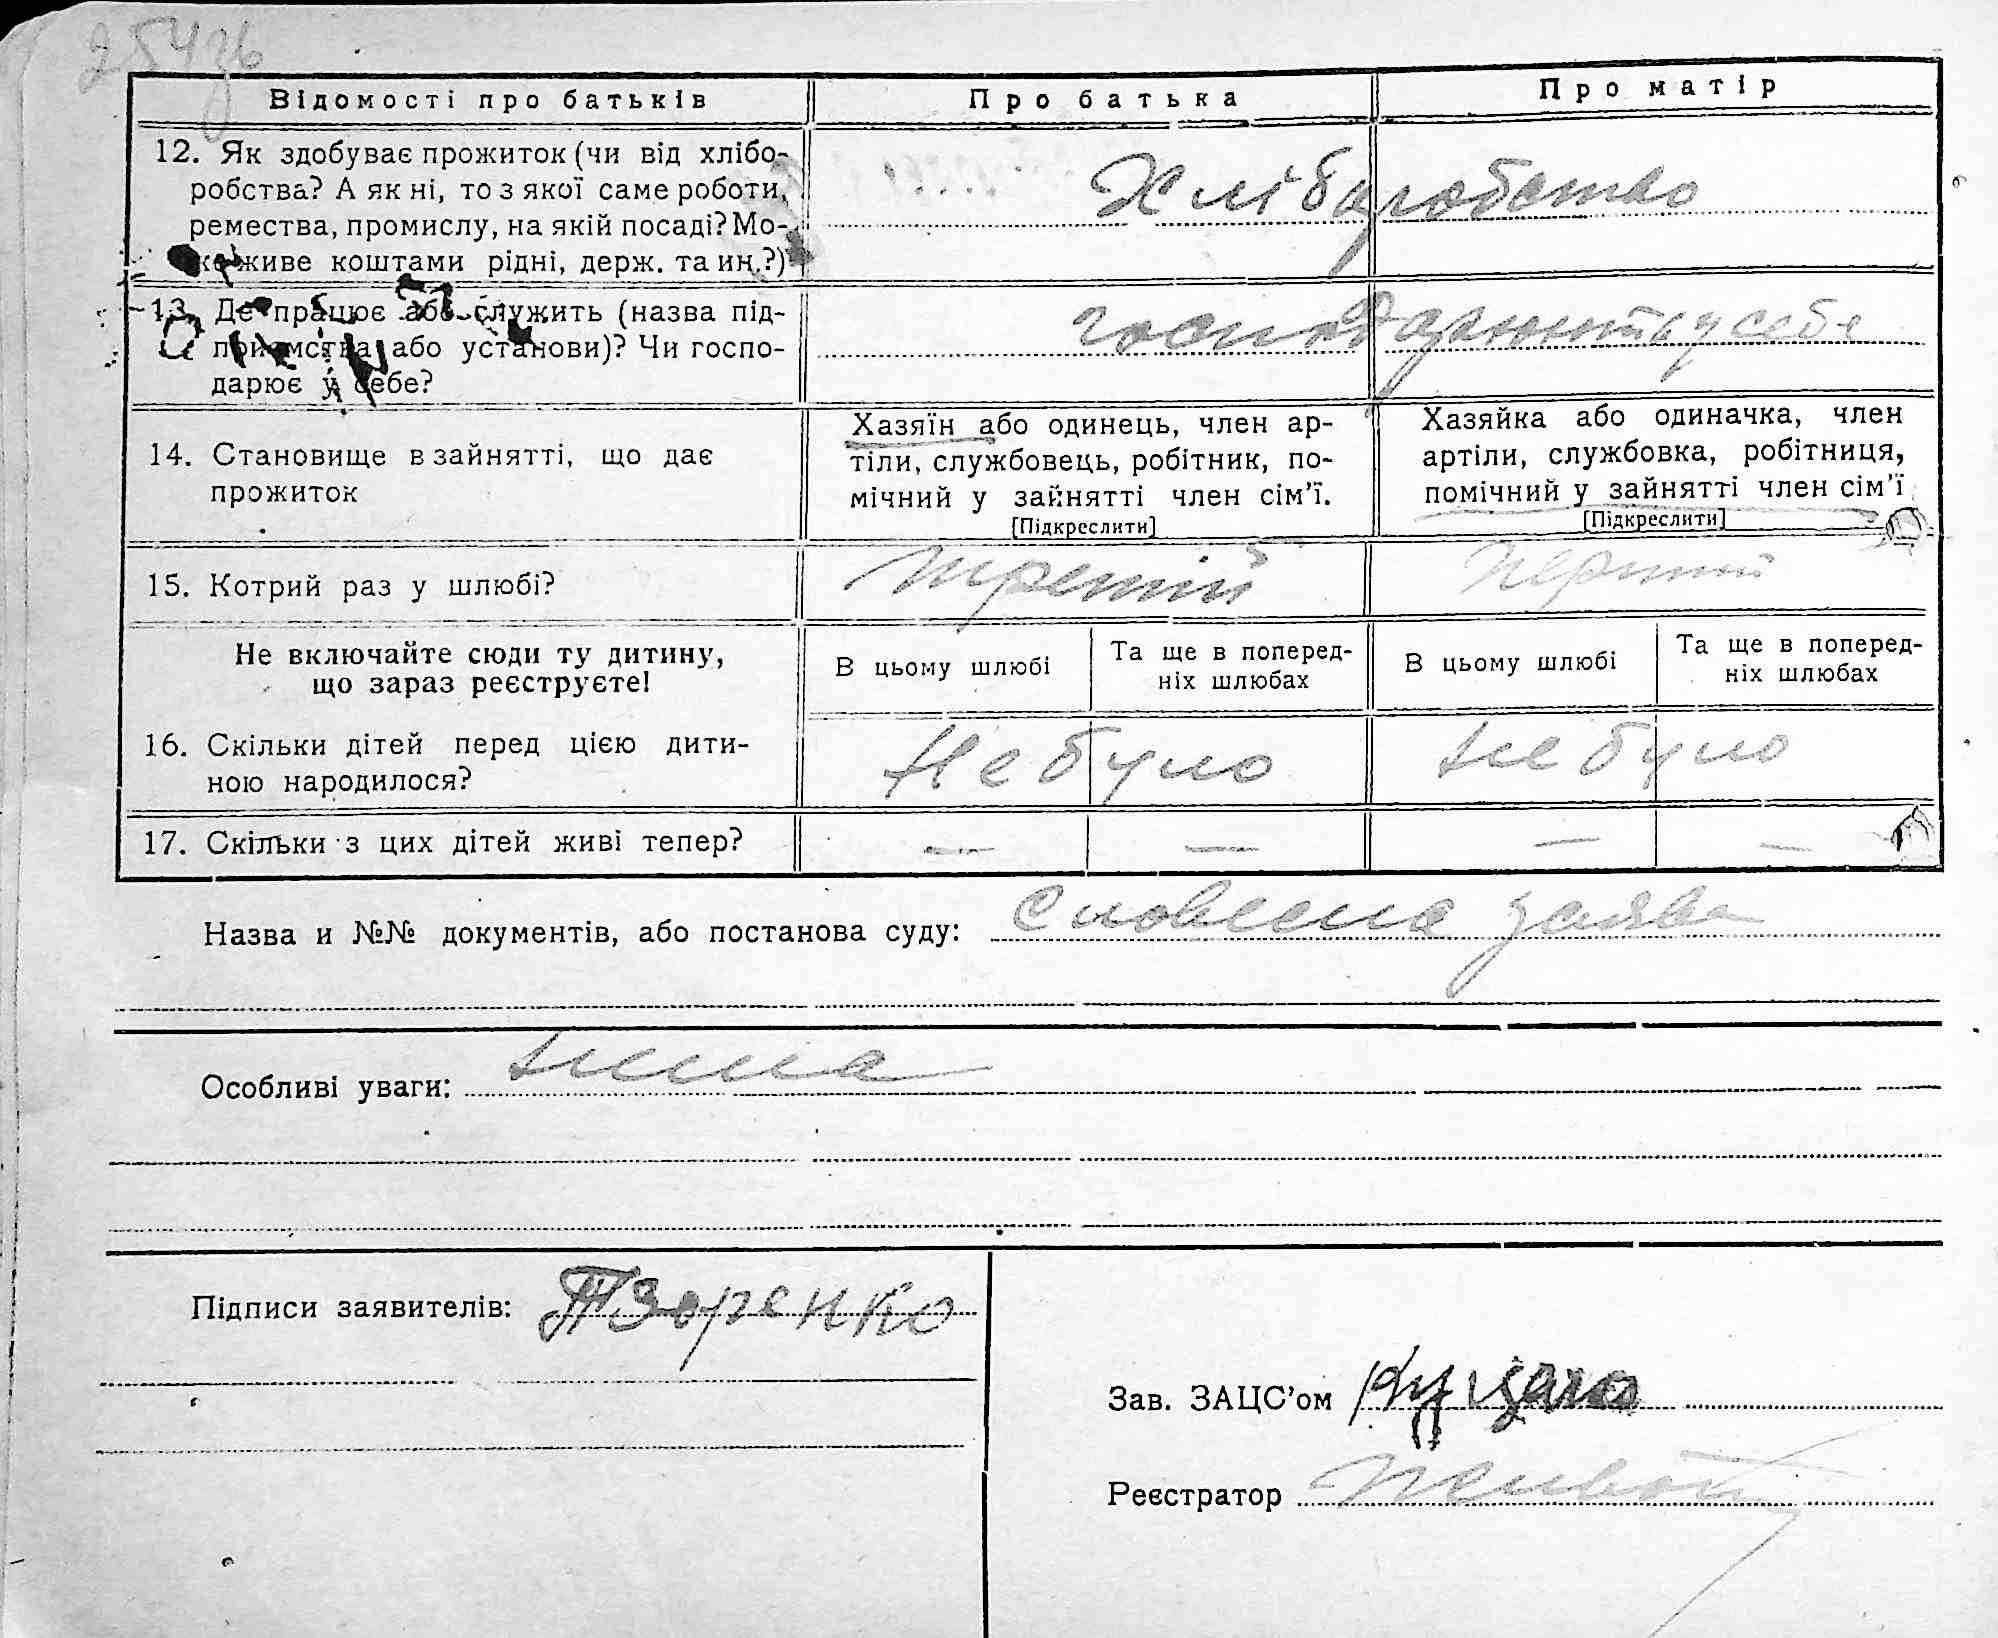 Відомості про батьків Про батька Про матір
12. Як здобуває прожиток (чи від хлібо-
робства? А як ні, то з якої саме роботи,
ремества, промислу, на якій посаді? Мо-
же живе коштами рідні, держ. та ин.?)
Хліборобство
13. Де працює або служить (назва під-
приємства або установи)? Чи госпо-
дарює у себе?
господарюють у себе
14. Становище в зайнятті, що дає
прожиток
Хазяїн або одинець, член ар-
тіли, службовець, робітник, по-
мічний у зайнятті член сім'ї.
[Підкреслити]
Хазяйка або одиначка, член
артіли, службовка, робітниця,
помічний у зайнятті член сім'ї
[Підкреслити]
15. Котрий раз у шлюбі? третій перший
Не включайте сюди ту дитину,
що зараз реєструєте!
В цьому шлюбі
Та ще в поперед-
ніх шлюбах
В цьому шлюбі
Та ще в поперед-
ніх шлюбах
16. Скільки дітей перед цією дити-
ною народилося?
не було не було
17. Скільки з цих дітей живі тепер? — — — —
Назва и №№ документів, або постанова суду: словесна заява
Особливі уваги:
Підписи заявителів: ТЗоренко
Зав. ЗАЦС'ом
Реєстратор